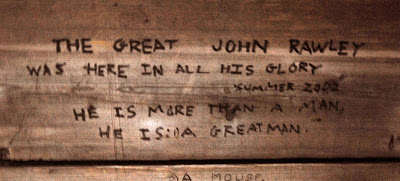 THE GREAT JOHN RAWLEY
WAS HERE IN ALL HIS GLORY
SUMMER 2002
HE IS MORE THAN A MAN,
HE IS: A GREAT MAN.
A MOUSE.